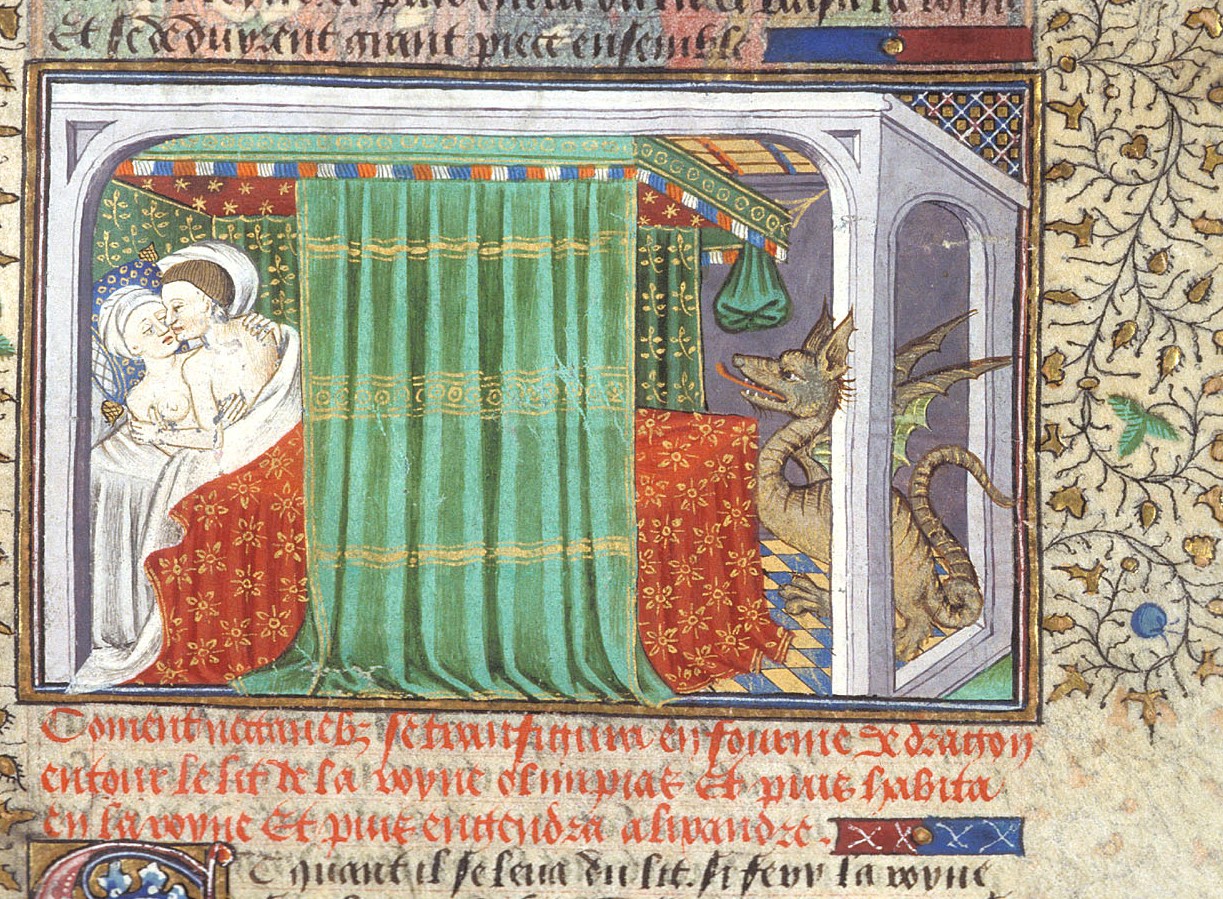 Et se deduyrent grant piece ensemble
Coment nectanebz se transfigura en fourme de dragon
entour le lit de la royne olimpias Et puis habita
en la royne Et puis engendra alixandre.
Et quant il se leua du lit. si fery la royne